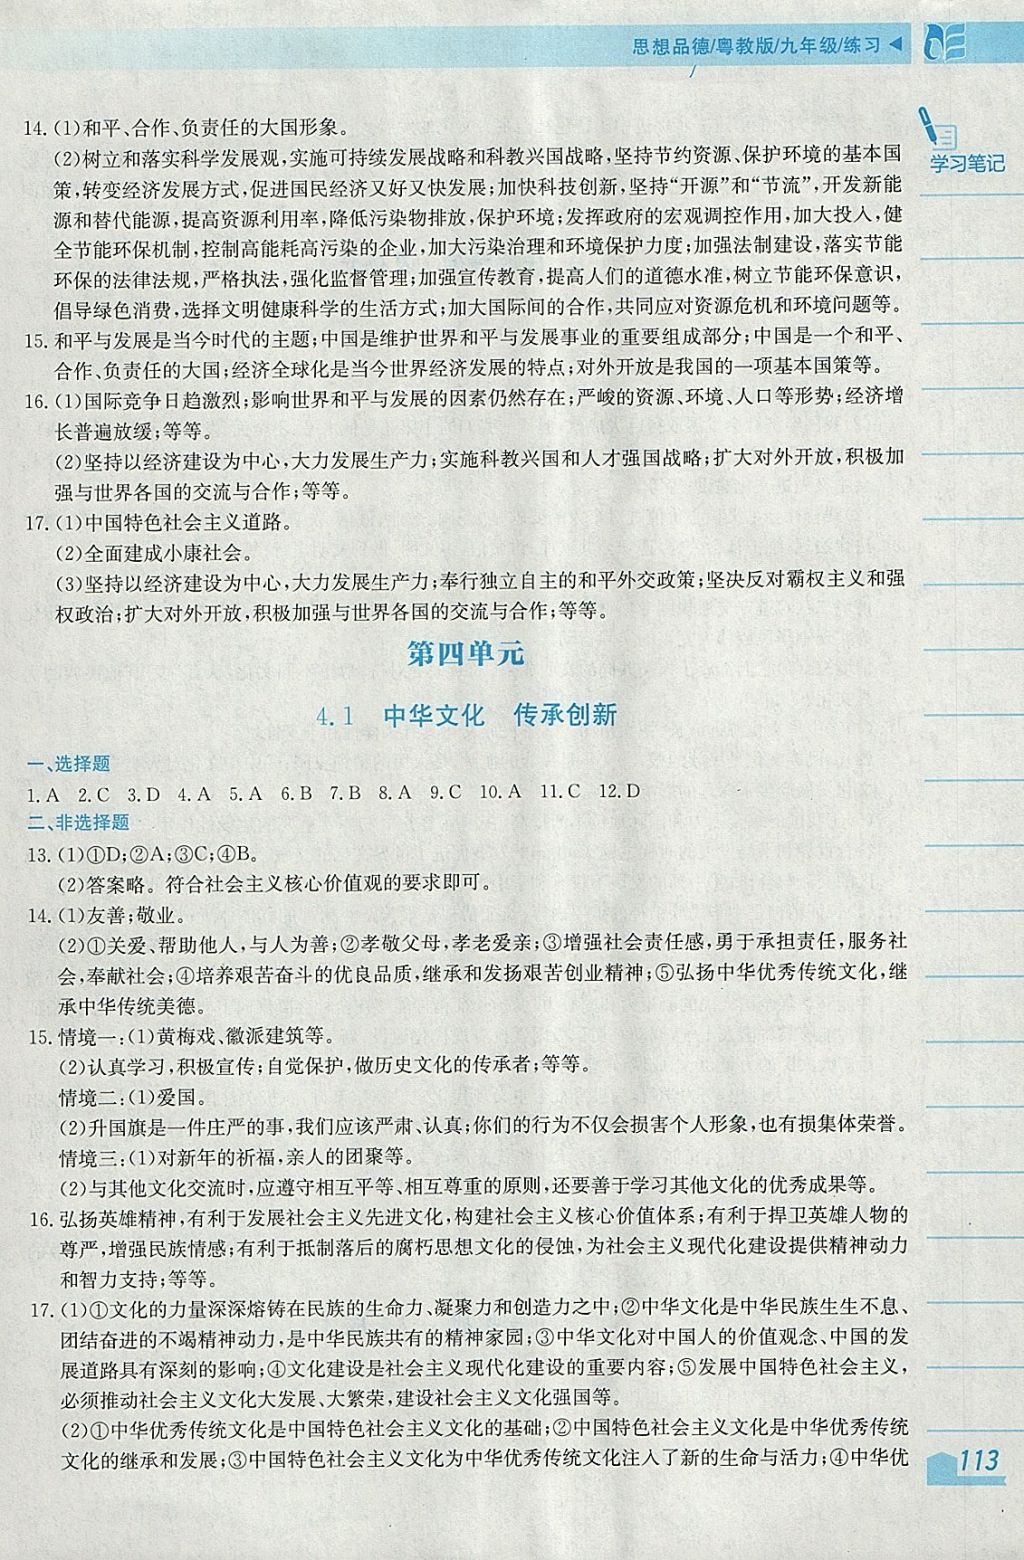 思想品德/粤教版/九年级/练习
学习笔记
14.(1)和平、合作、负责任的大国形象。
(2)树立和落实科学发展观,实施可持续发展战略和科教兴国战略,坚持节约资源、保护环境的基本国
策,转变经济发展方式,促进国民经济又好又快发展;加快科技创新,坚持“开源”和“节流”,开发新能
源和替代能源,提高资源利用率,降低污染物排放,保护环境;发挥政府的宏观调控作用,加大投入,健
全节能环保机制,控制高能耗高污染的企业,加大污染治理和环境保护力度;加强法制建设,落实节能
环保的法律法规,严格执法,强化监督管理;加强宣传教育,提高人们的道德水准,树立节能环保意识,
倡导绿色消费,选择文明健康科学的生活方式;加大国际间的合作,共同应对资源危机和环境问题等。
15.和平与发展是当今时代的主题;中国是维护世界和平与发展事业的重要组成部分;中国是一个和平、
合作、负责任的大国;经济全球化是当今世界经济发展的特点;对外开放是我国的一项基本国策等。
16.(1)国际竞争日趋激烈;影响世界和平与发展的因素仍然存在;严峻的资源、环境、人口等形势;经济增
长普遍放缓;等等。
(2)坚持以经济建设为中心,大力发展生产力;实施科教兴国和人才强国战略;扩大对外开放,积极加
强与世界各国的交流与合作;等等。
17.(1)中国特色社会主义道路。
(2)全面建成小康社会。
(3)坚持以经济建设为中心,大力发展生产力;奉行独立自主的和平外交政策;坚决反对霸权主义和强
权政治;扩大对外开放,积极加强与世界各国的交流与合作;等等。
第四单元
4.1 中华文化 传承创新
一、选择题
1.A 2.C 3.D 4.A 5.A 6.B 7.B 8.A 9.C 10.A 11.C 12.D
二、非选择题
13.(1)①D;②A;③C;④B。
(2)答案略。符合社会主义核心价值观的要求即可。
14.(1)友善;敬业。
(2)①关爱、帮助他人,与人为善;②孝敬父母,孝老爱亲;③增强社会责任感,勇于承担责任,服务社
会,奉献社会;④培养艰苦奋斗的优良品质,继承和发扬艰苦创业精神;⑤弘扬中华优秀传统文化,继
承中华传统美德。
15.情境一:(1)黄梅戏、徽派建筑等。
(2)认真学习,积极宣传;自觉保护,做历史文化的传承者;等等。
情境二:(1)爱国。
(2)升国旗是一件庄严的事,我们应该严肃、认真;你们的行为不仅会损害个人形象,也有损集体荣誉。
情境三:(1)对新年的祈福,亲人的团聚等。
(2)与其他文化交流时,应遵守相互平等、相互尊重的原则,还要善于学习其他文化的优秀成果等。
16.弘扬英雄精神,有利于发展社会主义先进文化,构建社会主义核心价值体系;有利于捍卫英雄人物的
尊严,增强民族情感;有利于抵制落后的腐朽思想文化的侵蚀,为社会主义现代化建设提供精神动力
和智力支持;等等。
17.(1)①文化的力量深深熔铸在民族的生命力、凝聚力和创造力之中;②中华文化是中华民族生生不息、
团结奋进的不竭精神动力,是中华民族共有的精神家园;③中华文化对中国人的价值观念、中国的发
展道路具有深刻的影响;④文化建设是社会主义现代化建设的重要内容;⑤发展中国特色社会主义,
必须推动社会主义文化大发展、大繁荣,建设社会主义文化强国等。
(2)①中华优秀传统文化是中国特色社会主义文化的基础;②中国特色社会主义文化是中华优秀传统
文化的继承和发展;③中国特色社会主义文化为中华优秀传统文化注入了新的生命与活力;④中华优
113